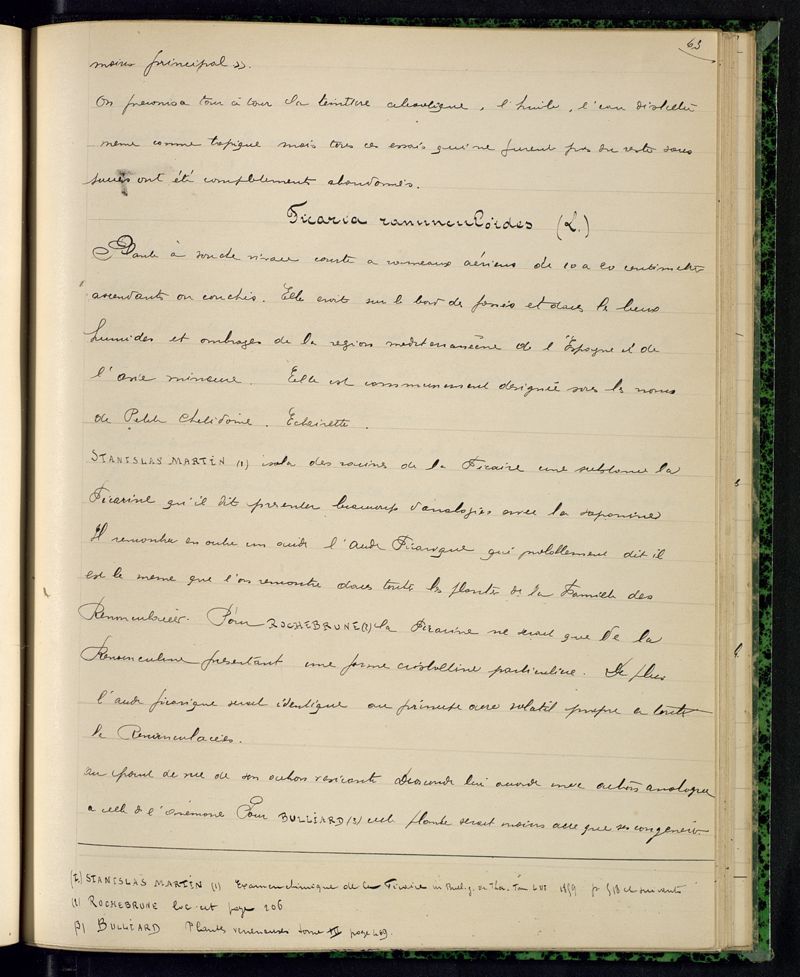 63
moins principal ».
On préconisa tour à tour la teinture alcoolique, l'huile, l'eau distillée
même comme topique mais tous ces essais qui ne furent pas du reste sans
succès ont été complètement abandonnés.
Ficaria ranunculoïdes (L.)
Plante à souche vivace courte a rameaux aériens de 10 a 20 centimètres
ascendants ou couchés. Elle croit sur le bord des fossés et dans les lieux
humides et ombragés de la region mediterranéene de l'Espagne et de
l'asie mineure. Elle est communement designée sous les noms
de Petite Chelidoine. Eclairette.
STANISLAS MARTIN (1) isola des racines de la Ficaire une substance la
Ficarine qu'il dit presenter beaucoup d'analogies avec la saponine
Il rencontra en outre un acide l'acide Ficarique qui probablement dit il
est le meme que l'on rencontre dans toutes les plantes de la Famille des
Renonculacées. Pour ROCHEBRUNE (2) la Ficarine ne serait que de la
Renonculine presentant une forme cristalline particulière. De plus
l'acide ficarique serait identique au principe acre volatil propre a toutes
les Renonculacées.
au point de vue de son action vesicante Dioscoride lui accorde une action analogue
a celle de l'anémone Pour BULLIARD (3) cette plante serait moins acre que ses congenères
STANISLAS MARTIN (1) Examen chimique de la Ficaire in Bull. g. de Thér. Tom LVI 1859 p 518 et suivants
(2) ROCHEBRUNE loc cit page 206
(3) BULLIARD Plantes vénéneuses tome III page 409.